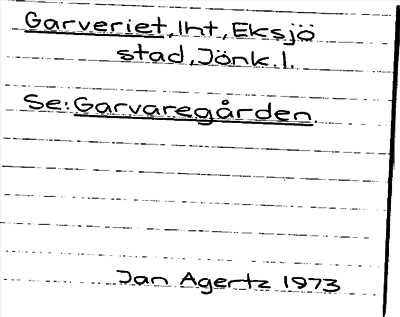 Garveriet, lht, Eksjö
stad, Jönk. l.
Se: Garvaregården.
Jan Agertz 1973